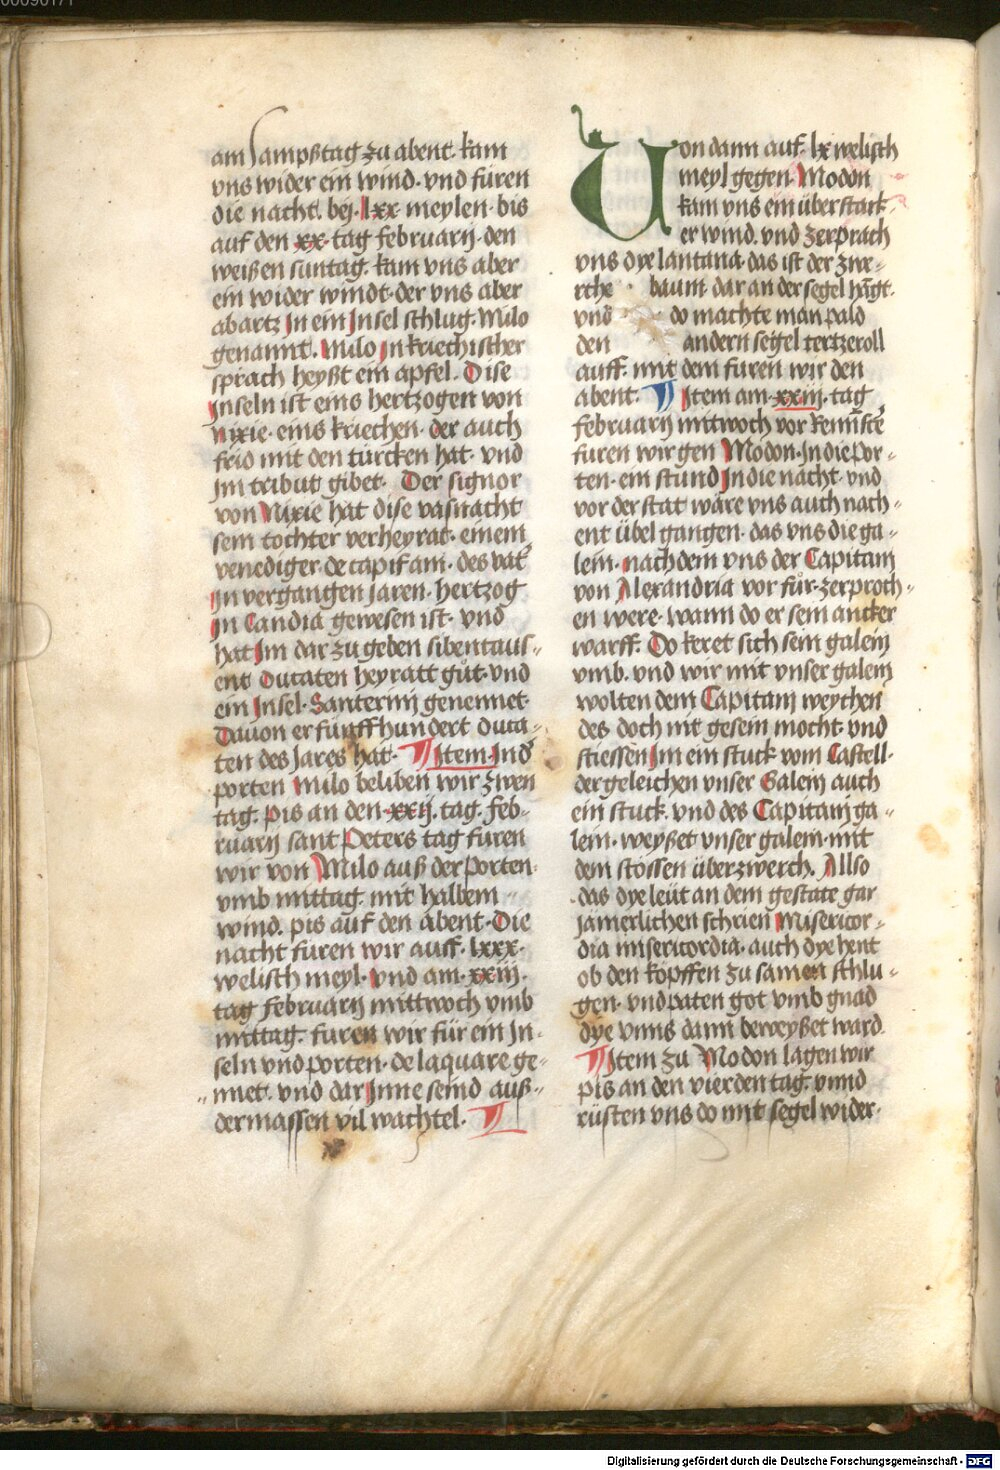 am sampßtag zu abent. kam
vns wider ein wind. vnd furen
die nacht. bej. lxx meylen. bis
auf den xx. tag februarij. den
weißen suntag. kam vns aber
ein wider windt. der vns aber
abartz Jn ein Jnsel schlug. Milo
genannt. Milo Jn kriechischer
sprach heyßt ein apfel. Dise
Jnseln ist eins hertzogen von
Nixie. eins kriechen. der auch
frid mit den türcken hat. vnd
Jm tribut gibet. Der signor
von Nixie hat dise vasnacht
sein tochter verheyrat. einem
venediger. de capifam. des vat̕
Jn vergangen Jaren. hertzog
Jn Candia gewesen ist. vnd
hat Jm dar zu geben sibentaus-
ent Ducaten heyratt gůt. vnd
ein Jnsel. Santerinj genennet.
Dauon er fünffhundert duca-
ten des Jares hat. ¶ Jtem Jnd̕
porten Milo beliben wir zwen
tag. pis an den. xxij. tag. feb-
ruarij sant Peters tag furen
wir von Milo auß der porten.
vmb mittag. mit halbem
wind. pis auf den abent. Die
nacht furen wir auff. lxxx.
welisch meyl. vnd am. xxiij.
tag februarij mittwoch vmb
mittag. furen wir für ein Jn-
seln vnd porten. de laquare ge-
nnet. vnd dar Jnne seind auß-
dermassen vil wachtel. ¶
Von dann auf. lx welisch
meyl gegen. Modon
kam vns ein überstarck
er wind. vnd zerprach
vns dye lantana. das ist der zwe-
rche baum. dar an der segel hāgt.
vnd do machte man pald
den andern segel tertzeroll
auff. mit dem furen wir den
abent. ¶ Jtem am. xxiij. tag
februarij mitwoch vor Reminscē
furen wir gen Modon. Jn die por-
ten. ein stund Jn die nacht. vnd
vor der stat wäre vns auch nach-
ent übel gangen. das vns die ga-
lein. nachdem vns der Capitanj
von Alexandria vor fůr. zerproch-
en were. wann do er sein ancker
warff. Do keret sich sein galein
vmb. vnd wir mit vnser galein
wolten dem Capitanj weychen
des doch nit gesein mocht. vnd
stiessen Jm ein stuck vom Castell.
dergeleichen vnser Galein auch
ein stuck. vnd des Capitanj ga-
lein. weyßet vnser galein. mit
dem stossen überzwerch. Allso
das dye leüt an dem gestate gar
jämerlichen schrien Misericor-
dia misericordia. auch dye hent
ob den köpffen zu samen schlu-
gen. vnd paten got vmb gnad
dye vnns dann beweyßet ward.
¶ Jtem zu Modon lagen wir
pis an den vierden tag. vnnd
rüsten vns do mit segel wider.
Digitalisierung gefördert durch die Deutsche Forschungsgemeinschaft - DFG